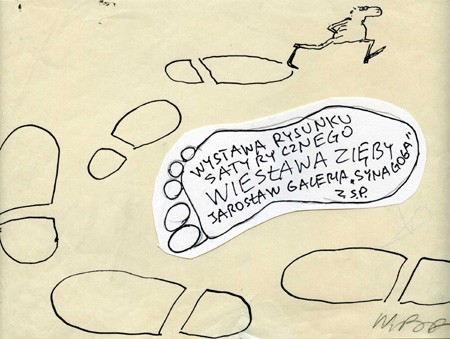 WYSTAWA RYSUNKU
SATYRYCZNEGO
WIESŁAWA ZIĘBY
JAROSŁAW GALERIA „SYNAGOGA”
Z S.P.